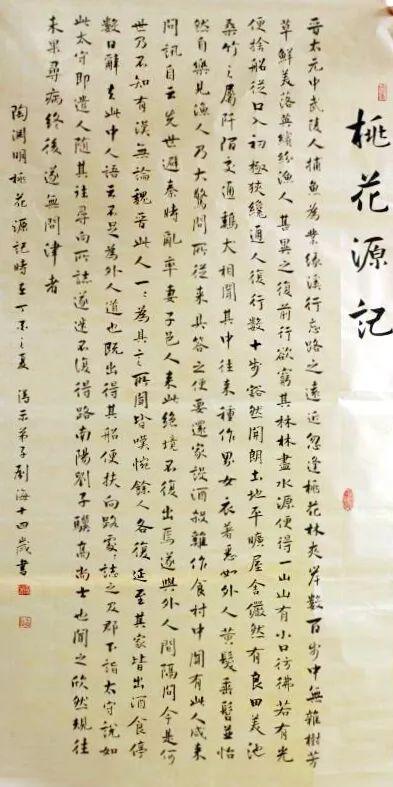 桃花源記
晉太元中武陵人捕魚為業緣溪行忘路之遠近忽逢桃花林夾岸數百步中無雜樹芳
草鮮美落英繽紛漁人甚異之復前行欲窮其林林盡水源便得一山山有小口彷彿若有光
便捨船從口入初極狹纔通人復行數十步豁然開朗土地平曠屋舍儼然有良田美池
桑竹之屬阡陌交通雞犬相聞其中往來種作男女衣著悉如外人黃髮垂髫並怡
然自樂見漁人乃大驚問所從來具答之便要還家設酒殺雞作食村中聞有此人咸來
問訊自云先世避秦時亂率妻子邑人來此絕境不復出焉遂與外人間隔問今是何
世乃不知有漢無論魏晉此人一一為具言所聞皆嘆惋餘人各復延至其家皆出酒食停
數日辭去此中人語云不足為外人道也既出得其船便扶向路處處誌之及郡下詣太守說如
此太守即遣人隨其往尋向所誌遂迷不復得路南陽劉子驥高尚士也聞之欣然規往
未果尋病終後遂無問津者
陶淵明桃花源記時在丁之夏 弟子劉海十四歲書